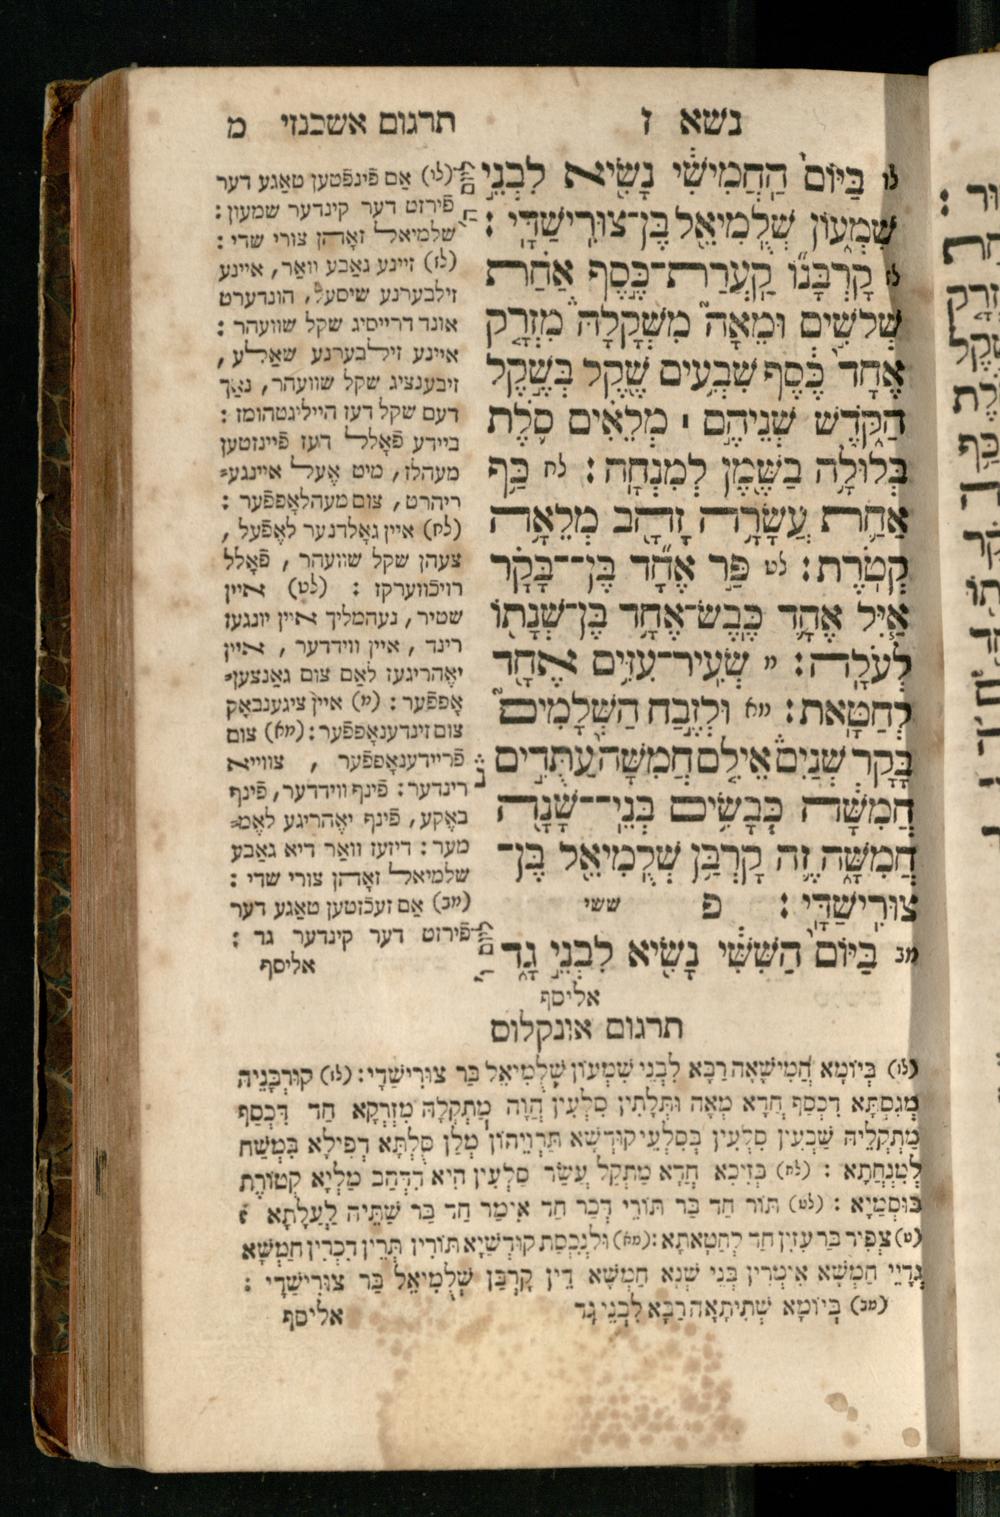 נשא ז תרגום אשכנזי מ
לו בַּיּוֹם הַחֲמִישִׁי נָשִׂיא לִבְנֵי
שִׁמְעוֹן שְׁלֻמִיאֵל בֶּן־צוּרִישַׁדָּי :
לז קָרְבָּנוֹ קַעֲרַת־כֶּסֶף אַחַת
שְׁלֹשִׁים וּמֵאָה מִשְׁקָלָהּ מִזְרָק
אֶחָד כֶּסֶף שִׁבְעִים שֶׁקֶל בְּשֶׁקֶל
הַקֹּדֶשׁ שְׁנֵיהֶם ׀ מְלֵאִים סֹלֶת
בְּלוּלָה בַשֶּׁמֶן לְמִנְחָה : לח כַּף
אַחַת עֲשָׂרָה זָהָב מְלֵאָה
קְטֹרֶת : לט פַּר אֶחָד בֶּן־בָּקָר
אַיִל אֶחָד כֶּבֶשׂ־אֶחָד בֶּן־שְׁנָתוֹ
לְעֹלָה : מ שְׂעִיר־עִזִּים אֶחָד
לְחַטָּאת : מא וּלְזֶבַח הַשְּׁלָמִים
בָּקָר שְׁנַיִם אֵילִם חֲמִשָּׁה עַתֻּדִים
חֲמִשָּׁה כְּבָשִׂים בְּנֵי־שָׁנָה
חֲמִשָּׁה זֶה קָרְבַּן שְׁלֻמִיאֵל בֶּן־
צוּרִישַׁדָּי : פ ששי
מב בַּיּוֹם הַשִּׁשִּׁי נָשִׂיא לִבְנֵי גָד
אליסף
(לו) אַם פֿינפֿטען טאַגע דער
פֿירזט דער קינדער שמעון :
שלמיאל זאָהן צורי שדי :
(לז) זיינע גאַבע וואַר, איינע
זילבערנע שיסעל, הונדערט
אונד דרייסיג שקל שוועהר :
איינע זילבערנע שאַלע,
זיבענציג שקל שווער, נאַך
דעם שקל דעז הייליגטהומז :
ביידע פֿאָלל דעז פֿיינזטען
מעהלז, מיט אָעל איינגע=
ריהרט, צום מעהלאָפפֿער :
(לח) איין גאָלדנער לאָפֿעל,
צעהן שקל שווער, פֿאָלל
רויכווערקז : (לט) איין
שטיר, נעהמליך איין יונגעז
רינד, איין ווידדער, איין
יאָהריגעז לאַם צום גאַנצען=
אָפפֿער : (מ) איין ציגענבאָק
צום זינדענאָפפֿער : (מא) צום
פֿריידענאָפפֿער, צווייא
רינדער : פֿינף ווידדער, פֿינף
באָקע, פֿינף יאָהריגע לאָמ=
מער : דיזעז וואַר דיא גאַבע
שלמיאל זאָהן צורי שדי :
(מב) אַם זעכזטען טאַגע דער
פֿירזט דער קינדער גד :
אליסף
תרגום אונקלוס
(לו) בְּיוֹמָא חֲמִישָׁאָה רַבָּא לִבְנֵי שִׁמְעוֹן שְׁלֻמִיאֵל בַּר צוּרִישַׁדָי : (לז) קוּרְבָּנֵיהּ
מְגִסְתָּא דִכְסַף חֲדָא מְאָה וּתְלָתִין סִלְעִין הֲוָה מַתְקְלָהּ מִזְרְקָא חַד דִּכְסַף
מַתְקְלֵיהּ שַׁבְעִין סִלְעִין בְּסִלְעֵי קוּדְשָׁא תַּרְוֵיהוֹן מְלַן סֻלְתָּא דְפִילָא בִמְשַׁח
לְמִנְחֲתָא : (לח) בָּזִיכָא חֲדָא מַתְקַל עֲשַׂר סִלְעִין הִיא דִדְהַב מַלְיָא קְטוֹרֶת
בּוּסְמַיָא : (לט) תּוֹר חַד בַּר תּוֹרֵי דְּכַר חַד אִימַר חַד בַּר שַׁתֵּיהּ לַעֲלָתָא :
(מ) צְפִיר בַּר עִזִּין חַד לְחַטָּאתָא : (מא) וּלְנִכְסַת קוּדְשַׁיָא תּוֹרִין תְּרֵין דִּכְרִין חַמְשָׁא
גְּדָיֵי חַמְשָׁא אִימְרִין בְּנֵי שְׁנָא חַמְשָׁא דֵּין קָרְבַּן שְׁלֻמִיאֵל בַּר צוּרִישַׁדָי :
(מב) בְּיוֹמָא שְׁתִיתָאָה רַבָּא לִבְנֵי גָד
אליסף